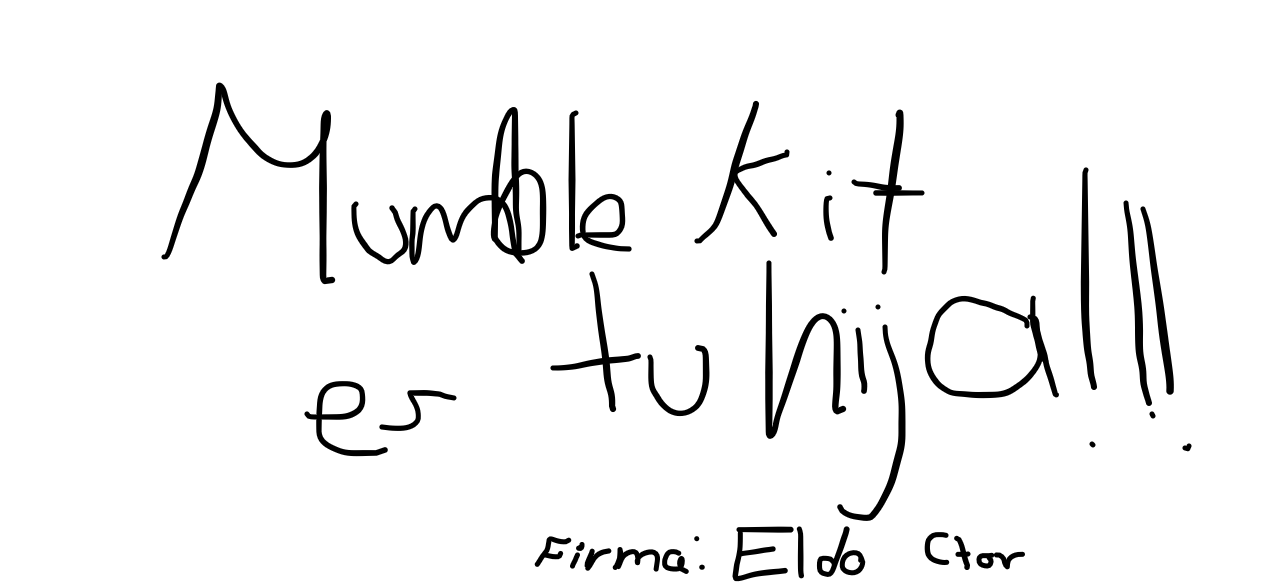 Mumble Kit
es tu hija!!!
Firma: Eldo Ctor